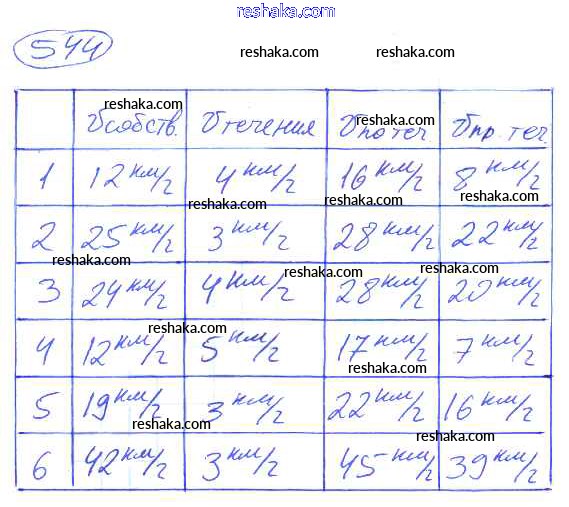 reshaka.com
544
reshaka.com reshaka.com
reshaka.com reshaka.com reshaka.com
Vсобств. Vтечения Vпо теч. Vпр. теч.
reshaka.com
1 12 км/ч 4 км/ч 16 км/ч 8 км/ч
reshaka.com reshaka.com reshaka.com
2 25 км/ч 3 км/ч 28 км/ч 22 км/ч
reshaka.com reshaka.com reshaka.com
3 24 км/ч 4 км/ч 28 км/ч 20 км/ч
reshaka.com
4 12 км/ч 5 км/ч 17 км/ч 7 км/ч
reshaka.com
5 19 км/ч 3 км/ч 22 км/ч 16 км/ч
reshaka.com reshaka.com
6 42 км/ч 3 км/ч 45 км/ч 39 км/ч